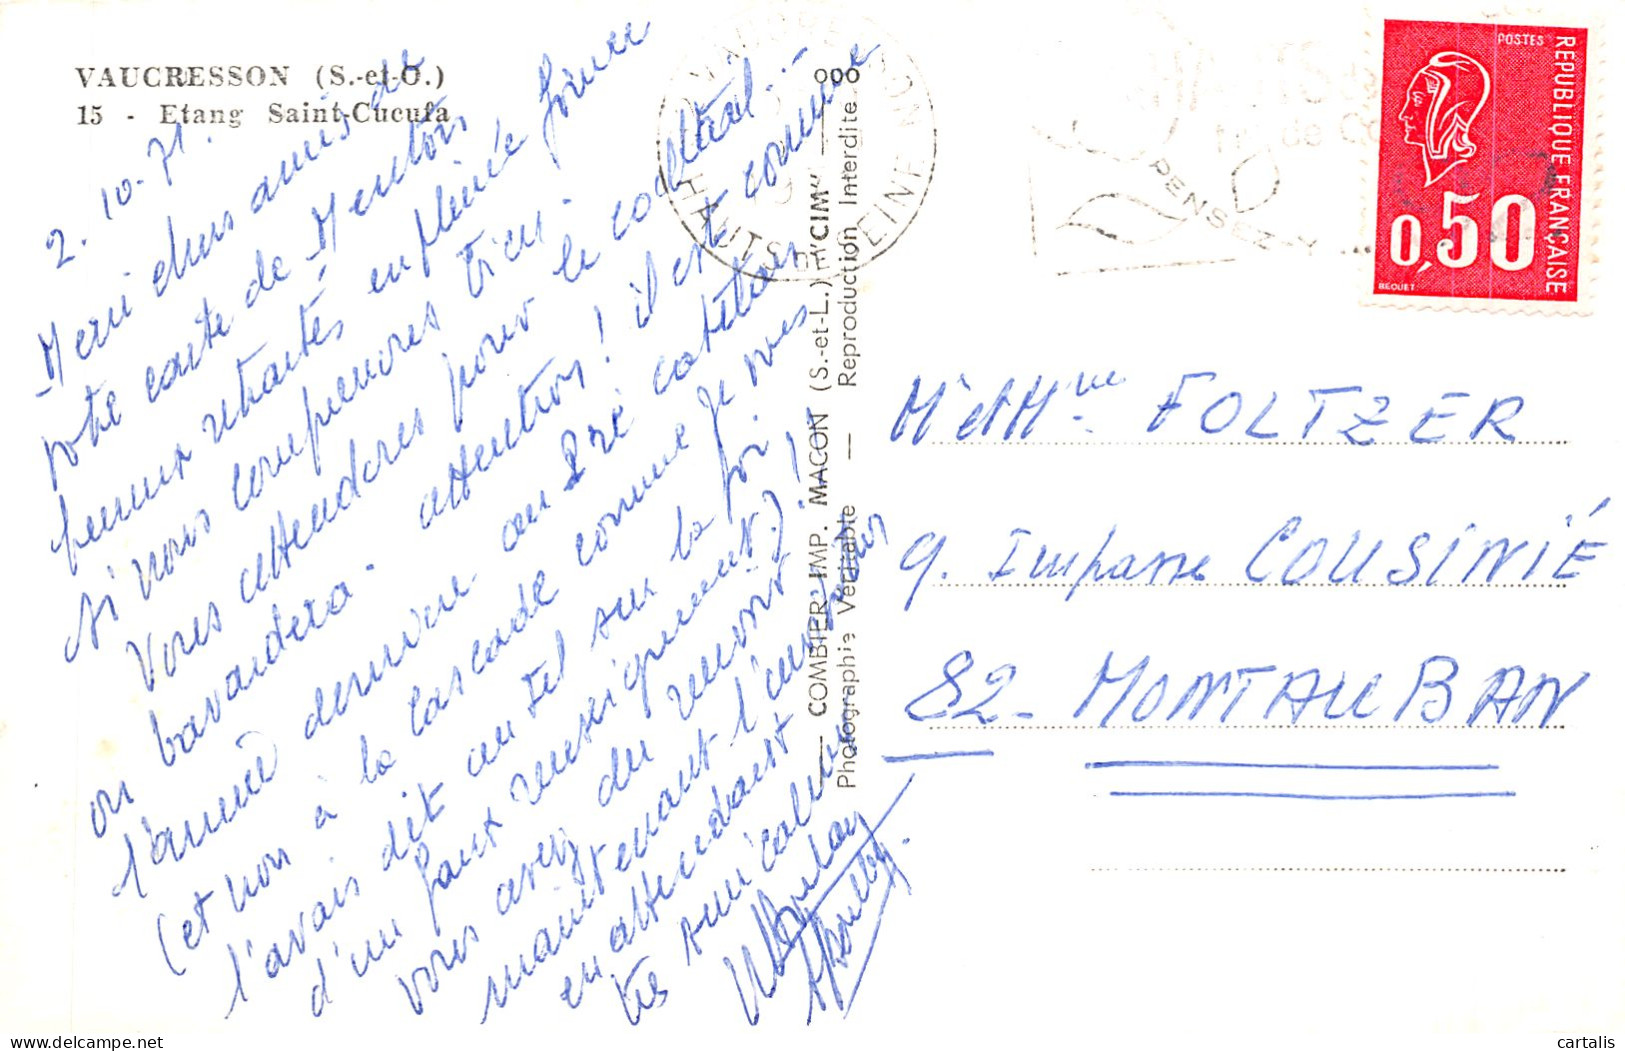 VAUCRESSON (S.-et-O.)
15 - Etang Saint-Cucufa
2. 10. 71.
Merci chers amis de
votre carte de Menton
heureux retraités en pleine forme
si nous comprenons bien.
Vous attendons pour le cocktail
ou bavardera. attention! il est comme
l'année dernière au Pré catelan
(et non à la cascade comme je vous
l'avais dit au tel sur la foi
d'un faux renseignement)!
vous avez du recevoir
maintenant l'invitation
en attendant
très amicalement
COMBIER IMP. MACON (S.-et-L.) "CIM"
Photographie Véritable — Reproduction Interdite
HAUTS DE SEINE
PENSEZ-Y
POSTES
REPUBLIQUE FRANÇAISE
0,50
BEQUET
Mr et Mme FOLTZER
9. Impasse COUSINIÉ
82 - MONTAUBAN
cartalis